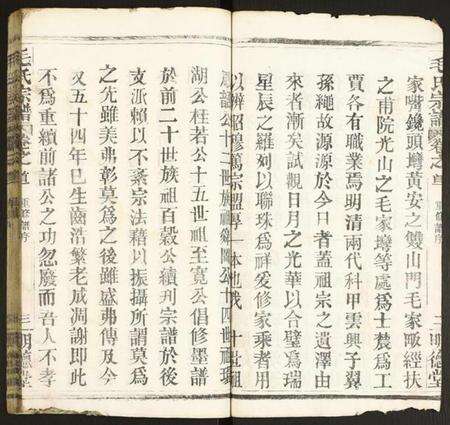 毛氏宗譜
卷之首
重修譜序
二
明德堂
家嘴鐃頭塆黃安之雙山門毛家畈經扶
之甫院光山之毛家塆等處爲士爲工
賈各有職業焉明清兩代科甲雲興子翼
孫繩故源源於今日者蓋祖宗之遺澤由
來者漸矣試觀日月之光華以合璧爲瑞
星辰之羅列以聯珠爲祥爰修家乘者用
以辨昭穆篤宗盟専一本也我十世祖
公十二世族祖舜陶公十四世祖瑛
湖公柱若公十五世祖至寬公倡修墨譜
於前二十世族祖百穀公續刋宗譜於後
支派賴以不紊宗法藉以振攝所謂莫爲
之先雖美弗彰莫爲之後雖盛弗傳及今
又五十四年巳生齒浩繁老成凋謝卽此
不爲重續前諸公之功忽廢而吾人不孝
毛氏宗譜
卷之首
重修譜序
三
明德堂